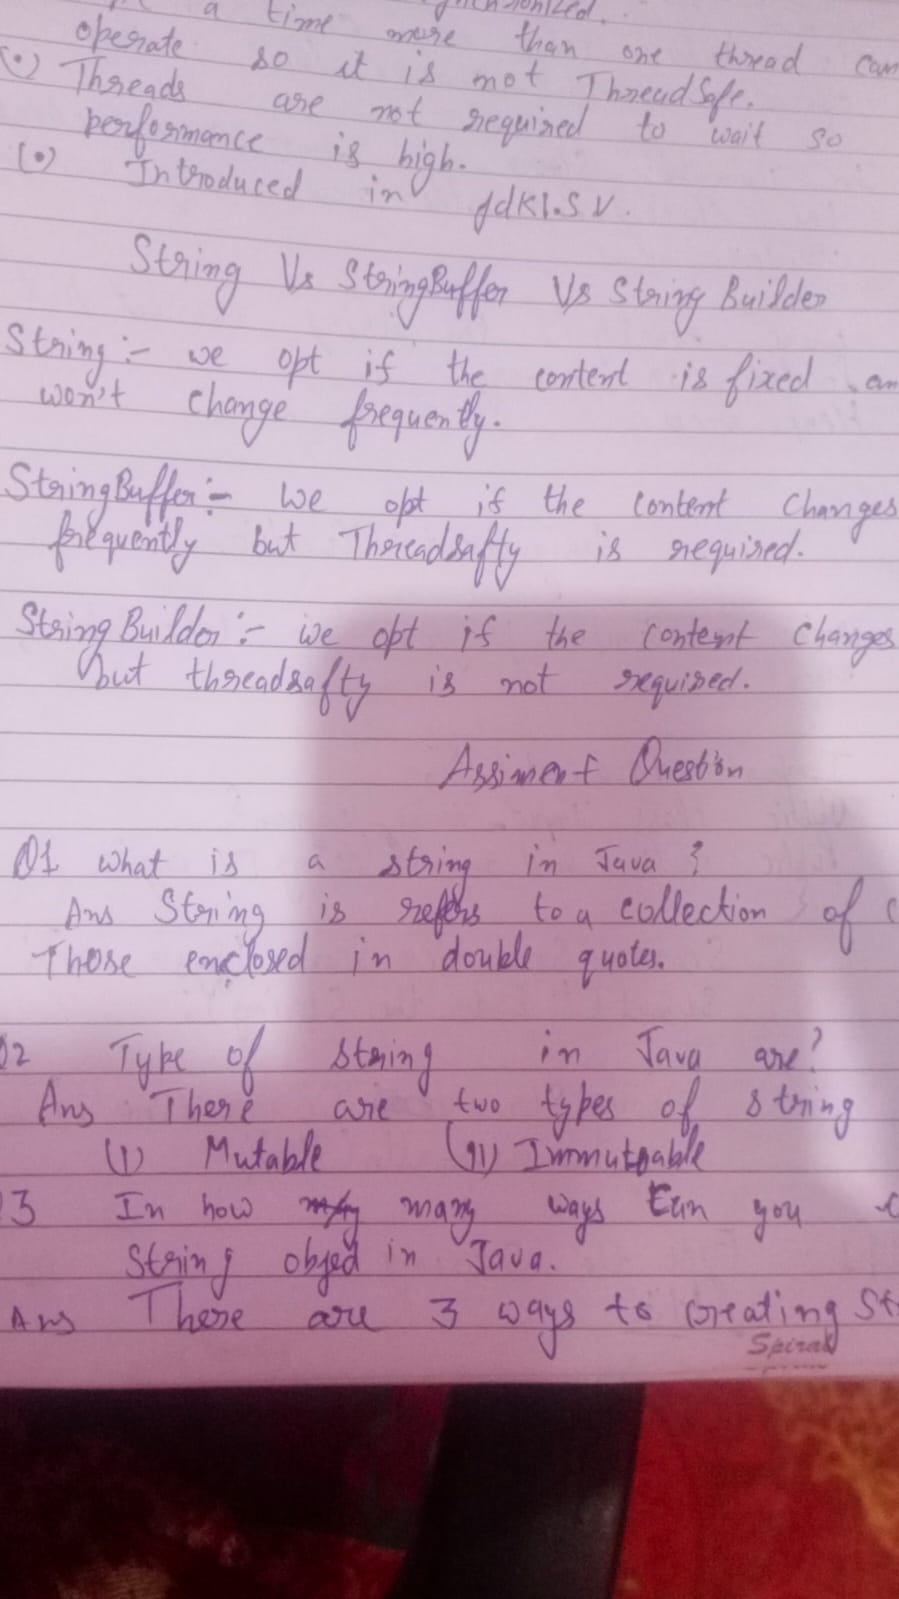 a time
operate so it is not ThreadSafe.
more than one thread can
(•) Threads are not required to wait so
performance is high.
(•) Introduced in JdK1.5 V.
String Vs StringBuffer Vs String Builder
String :- we opt if the content is fixed an
won't change frequently.
StringBuffer :- we opt if the content changes
frequently but Threadsafty is required.
String Builder :- we opt if the content changes
but threadsafty is not required.
Assiment Question
Q1 what is a string in Java ?
Ans String is refers to a collection of c
Those enclosed in double quotes.
Q2 Type of string in Java are?
Ans There are two types of string
(i) Mutable (ii) Immutable
3 In how many ways can you c
String object in Java.
Ans There are 3 ways to creating St
Spiral